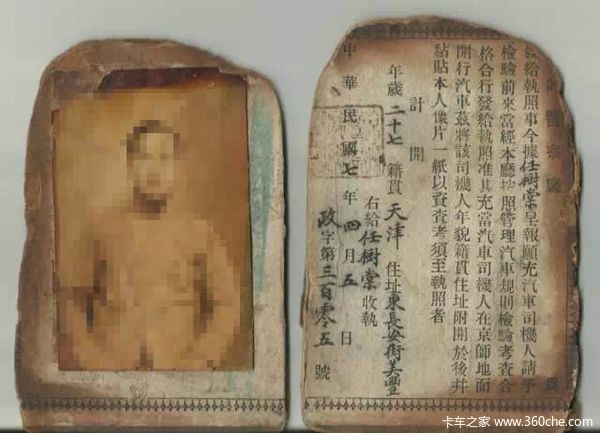 師警察廳 為
發給執照事今據任樹棠呈報願充汽車司機人請予
檢驗前來當經本廳按照管理汽車規則檢驗考查合
格合行發給執照准其充當汽車司機人在京師地面
開行汽車茲將該司機人年貌籍貫住址附開於後并
黏貼本人像片一紙以資查考須至執照者
計開
年歲二十七 籍貫天津 住址東長安街美豐
右給任樹棠收執
中華民國七年四月五日
政字第三百零五號
卡车之家 www.360che.com